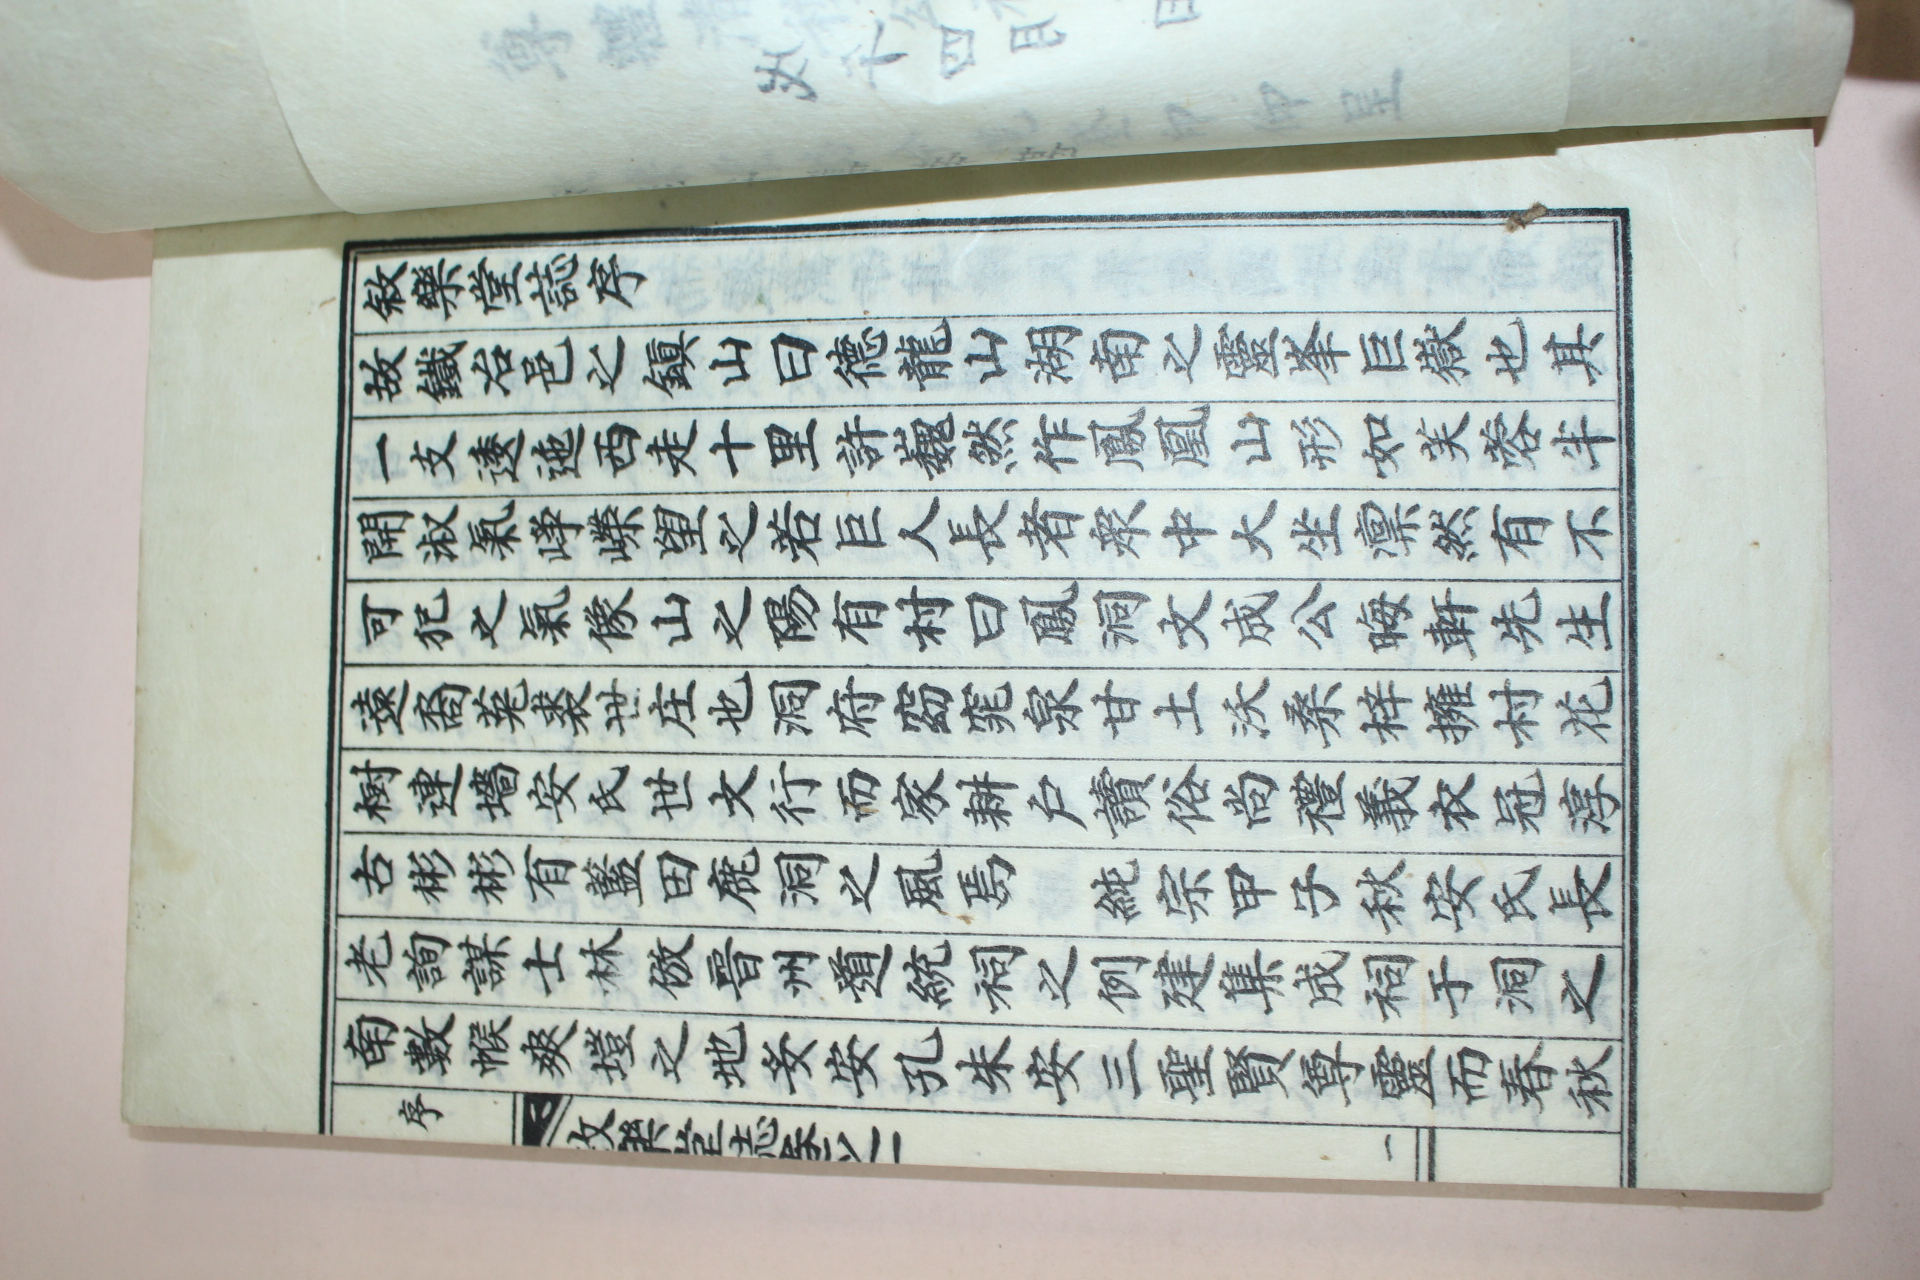 敘樂堂誌序
故鐵冶邑之鎭山曰德龍山湖南之靈峯巨嶽也其
一支逶迤西走十里許巍然作鳳凰山形如芙蓉半
開淑氣崢嶸望之若巨人長者衆中大坐凛然有不
可犯之氣像山之陽有村曰鳳洞文成公晦軒先生
遠裔菟裘世庄也洞府窈窕泉甘土沃桑梓擁村花
樹連墻安氏世文行而家耕戶讀俗尙禮義衣冠淳
古彬彬有藍田鹿洞之風焉 純宗甲子秋安氏長
老詢謀士林倣晋州道統祠之例建集成祠于洞之
南數帿爽塏之地妥安孔朱安三聖賢尊靈而春秋
序
敘樂堂誌卷之一
一
四